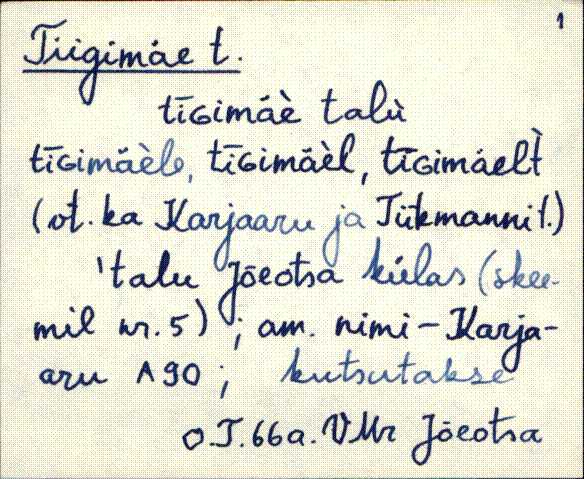 1
Tiigimäe t.
tīɢimäè talù
tīɢimäèle, tīɢimäèl, tīɢimäelt̀
(vt. ka Karjaaru ja Tükmanni t.)
'talu Jõeotsa külas (skee-
mil nr. 5) ; am. nimi - Karja-
aru A90 ; kutsutakse
O.T. 66a. VMr Jõeotsa